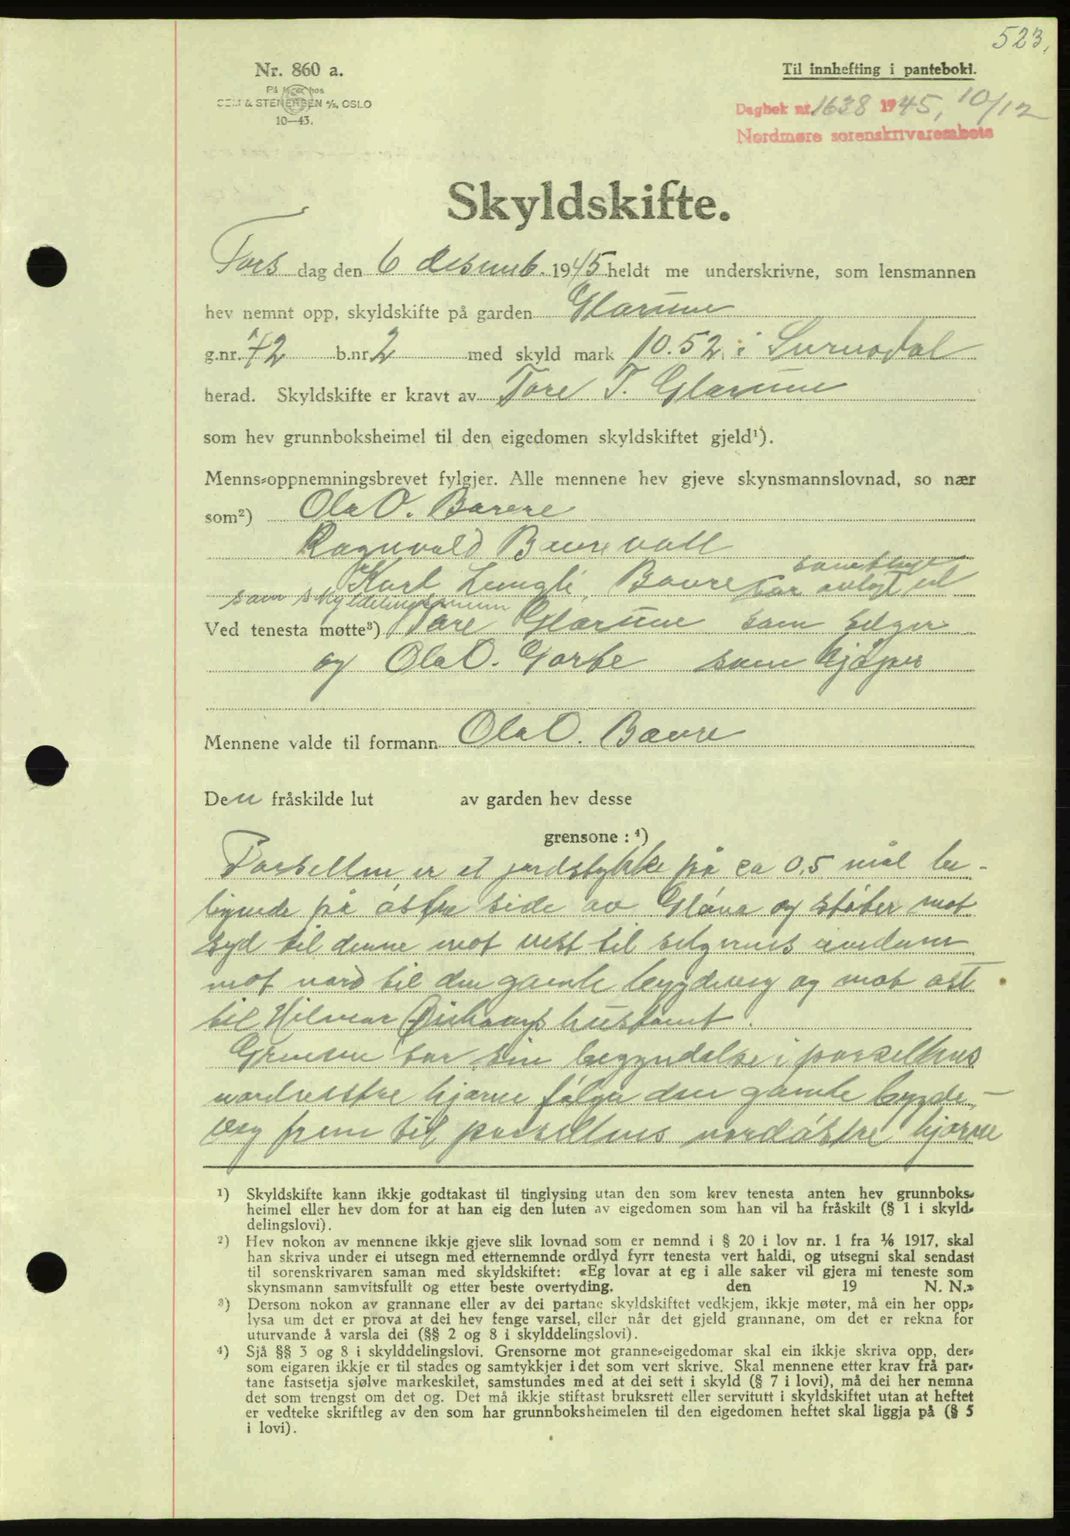 523.
Nr. 860 a.
Til innhefting i panteboki.
På lager hos
SEM & STENERSEN A/S, OSLO
10—43.
Dagbok nr. 1638 1945, 10/12
Nordmøre sorenskrivarembete
Skyldskifte.
Tors dag den 6 desemb. 1945 heldt me underskrivne, som lensmannen
hev nemnt opp, skyldskifte på garden Glærum
g.nr. 72 b.nr 2 med skyld mark 10.52 i Surnadal
herad. Skyldskifte er kravt av Tore T. Glærum
som hev grunnboksheimel til den eigedomen skyldskiftet gjeld¹).
Menns-oppnemningsbrevet fylgjer. Alle mennene hev gjeve skynsmannslovnad, so nær
som²) Ola O. Bævre
Ragnvald Bævre
Karl Bævre har avlagt ed
som
Ved tenesta møtte³) Tore Glærum som selger
og Ola O. som kjøper
Mennene valde til formann Ola O. Bævre
Den fråskilde lut av garden hev desse
grensone : ⁴)
Parsellen er et jordstykke på ca 0,5 mål be-
liggende på østre side av og støter mot
syd til denne mot vest til selgerens
mot nord til den gamle bygdeveg og mot øst
til Hilmar
Grensen har sin begyndelse i parsellens
nordvestre hjørne følger den gamle bygde-
veg frem til parsellens nordøstre hjørne
¹) Skyldskifte kann ikkje godtakast til tinglysing utan den som krev tenesta anten hev grunnboks-
heimel eller hev dom for at han eig den luten av eigedomen som han vil ha fråskilt (§ 1 i skyld-
delingslovi).
²) Hev nokon av mennene ikkje gjeve slik lovnad som er nemnd i § 20 i lov nr. 1 fra 1/6 1917, skal
han skriva under ei utsegn med etternemnde ordlyd fyrr tenesta vert haldi, og utsegni skal sendast
til sorenskrivaren saman med skyldskiftet: «Eg lovar at eg i alle saker vil gjera mi teneste som
skynsmann samvitsfullt og etter beste overtyding. den 19 N. N.»
³) Dersom nokon av grannane eller av dei partane skyldskiftet vedkjem, ikkje møter, må ein her opp-
lysa um det er prova at dei hev fenge varsel, eller når det gjeld grannane, om det er rekna for
uturvande å varsla dei (§§ 2 og 8 i skylddelingslovi).
⁴) Sjå §§ 3 og 8 i skylddelingslovi. Grensorne mot granne-eigedomar skal ein ikkje skriva opp, der-
som eigaren ikkje er til stades og samtykkjer i det som vert skrive. Skal mennene etter krav frå par-
tane fastsetja sjølve markeskilet, samstundes med at dei sett i skyld (§ 7 i lovi), må dei her nemna
det som trengst om det og. Det må ikkje stiftast bruksrett eller servitutt i skyldskiftet utan at heftet
er vedteke skriftleg av den som har grunnboksheimelen til den eigedomen heftet skal liggja på (§ 5
i lovi).